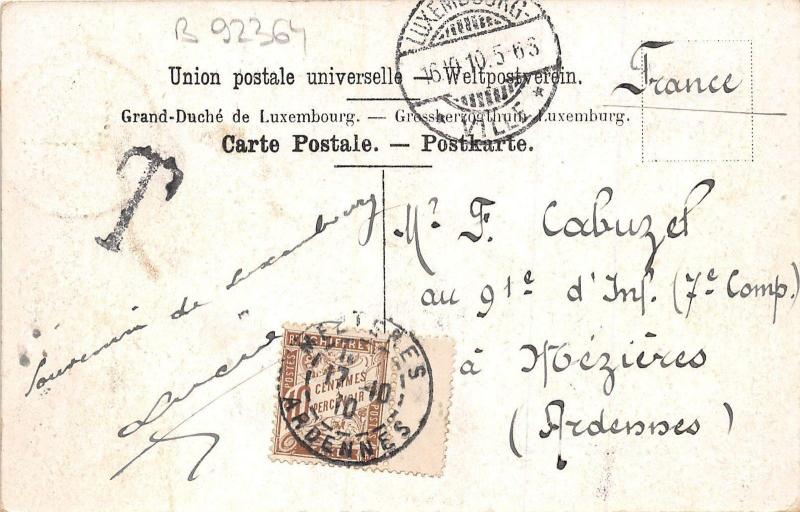 B 92364
LUXEMBOURG-
16.10.10.5-6S
VILLE *
Union postale universelle — Weltpostverein.
France
Grand-Duché de Luxembourg. — Grossherzogthum Luxemburg.
Carte Postale. — Postkarte.
T
Mr F. Cabuzel
au 91e d'Inf. (7e Comp.)
à Mézières
(Ardennes)
Souvenir de Luxembourg
CHIFFRE
POSTES
CENTIMES
PERCEVOIR
MEZIERES
17 -10
10
ARDENNES